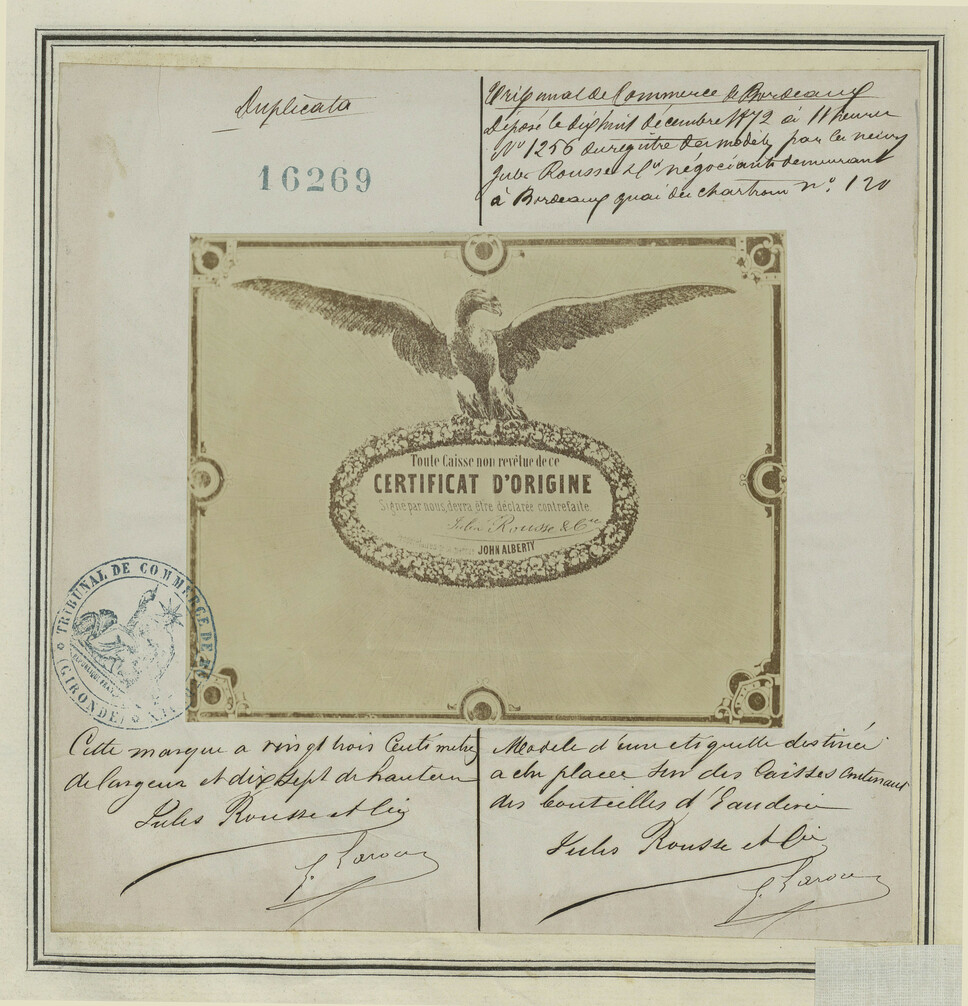 Duplicata
16269
Tribunal de Commerce de Bordeaux
Déposé le dix huit décembre 1872 à 11 heures
No 1256 du registre des modèles par les
Jules Rousse & Cie négociants demeurant
à Bordeaux quai des chartrons no. 120
Toute Caisse non revêtue de ce
CERTIFICAT D'ORIGINE
Signé par nous, devra être déclarée contrefaite.
Jules Rousse & Cie
JOHN ALBERTY
TRIBUNAL DE COMMERCE DE
(GIRONDE)
Cette marque a vingt trois Centimètres
de largeur et dix sept de hauteur
Jules Rousse et Cie
Modele d'une etiquette destinée
a etre placee sur des Caisses contenant
des bouteilles d'Eau de vie
Jules Rousse et Cie